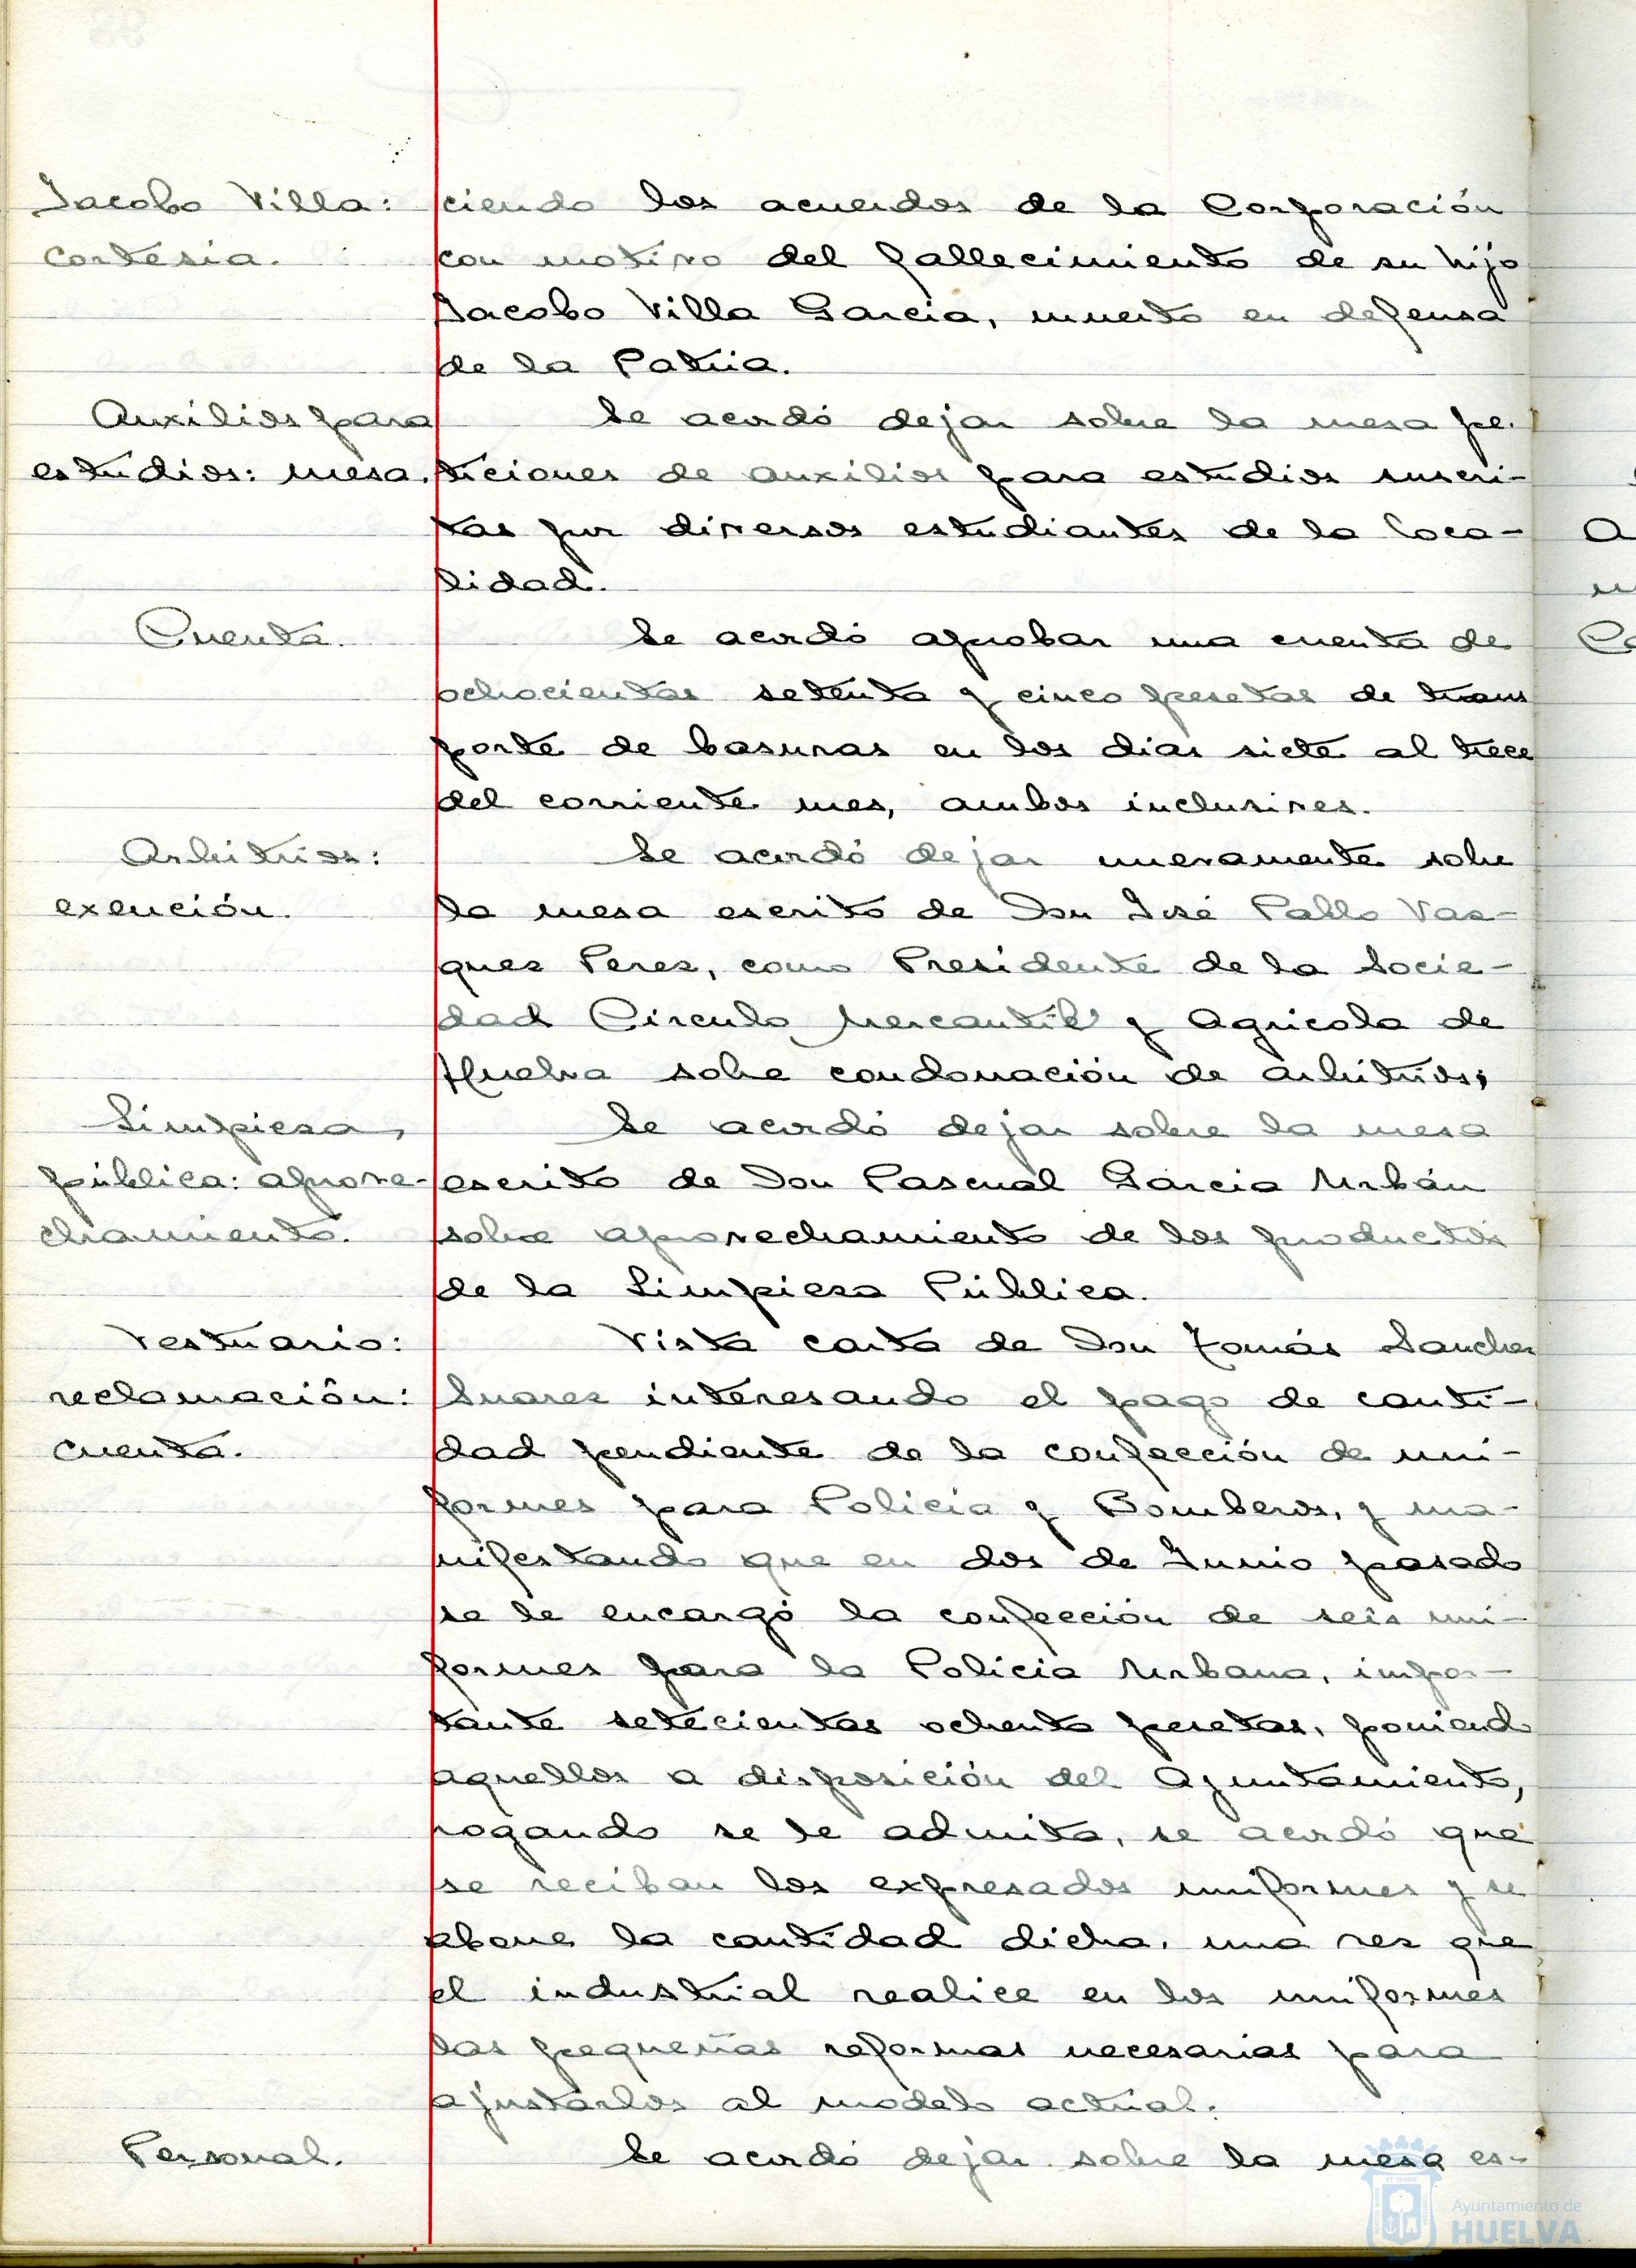 Jacobo Villa:
cortesia.
ciendo los acuerdos de la Corporación
con motivo del fallecimiento de su hijo
Jacobo Villa Garcia, muerto en defensa
de la Patria.
Auxilios para
estudios: mesa.
Se acordó dejar sobre la mesa pe-
ticiones de auxilios para estudios suscri-
tas por diversos estudiantes de la loca-
lidad.
Cuenta.
Se acordó aprobar una cuenta de
ochocientas setenta y cinco pesetas de trans
porte de basuras en los dias siete al trece
del corriente mes, ambos inclusives.
Arbitrios:
exención.
Se acordó dejar nuevamente sobre
la mesa escrito de Don José Pablo Vaz-
quez Perez, como Presidente de la Socie-
dad Circulo Mercantil y Agricola de
Huelva sobre condonación de arbitrios;
Limpieza
pública: aprove-
chamiento.
Se acordó dejar sobre la mesa
escrito de Don Pascual Garcia Urbán
sobre aprovechamiento de los productos
de la Limpieza Pública.
Vestuario:
reclamación:
cuenta.
Vista carta de Don Tomás Sanchez
Suarez interesando el pago de canti-
dad pendiente de la confección de uni-
formes para Policia y Bomberos, y ma-
nifestando que en dos de Junio pasado
se le encargó la confección de seis uni-
formes para la Policia Urbana, impor-
tante setecientas ochenta pesetas, poniendo
aquellos a disposición del Ayuntamiento,
rogando se le admita, se acordó que
se reciban los expresados uniformes y se
abone la cantidad dicha, una vez que
el industrial realice en los uniformes
las pequeñas reformas necesarias para
ajustarlos al modelo actual.
Personal.
Se acordó dejar sobre la mesa es-
Ayuntamiento de
HUELVA